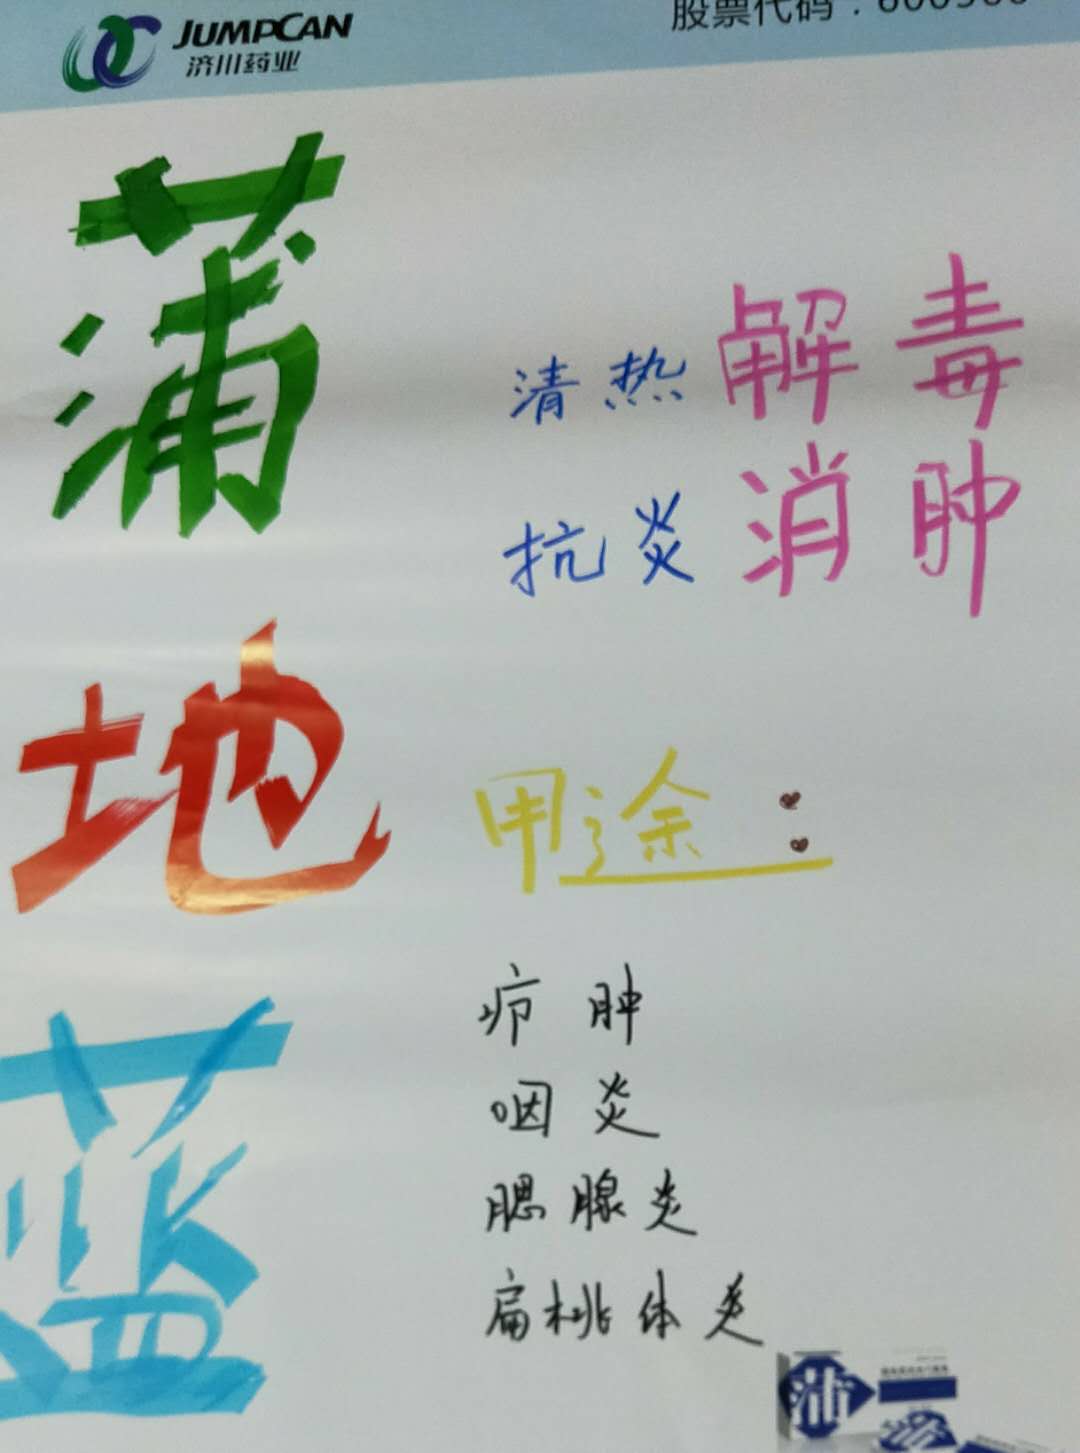 JUMPCAN
济川药业
股票代码：600566
蒲地蓝
清热解毒
抗炎消肿
用途：
疖肿
咽炎
腮腺炎
扁桃体炎